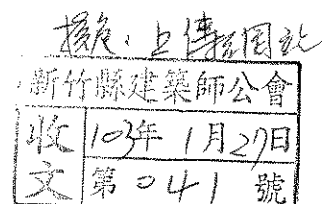 擬危：上傳至網站
新竹縣建築師公會
收文
103年1月27日
第041號